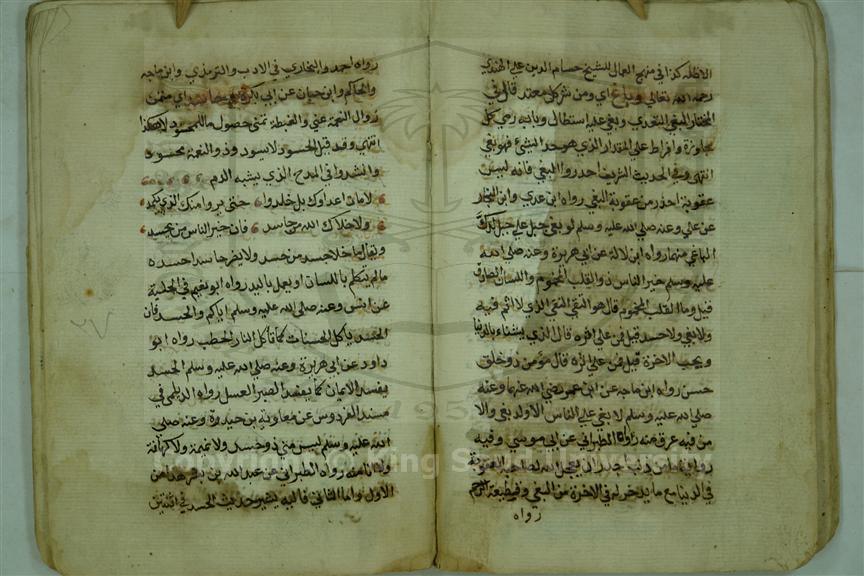 الاظله كذا في منهج العمال للشيخ حسام الدين علي الهندي
رحمه الله تعالى وباغ اي ومن شر كل معتد قال في
المختار البغي التعدي وبغى عليه استطال وبابه رمى وكل
مجاوزة وافراط على المقدار الذي هو حد الشيء فهو بغي
انتهى وفي الحديث الشريف احذروا البغي فانه ليس
عقوبة احذر من عقوبة البغي رواه ابن عدي وابن النجار
عن علي وعنه صلى الله عليه وسلم لو بغى جبل على جبل لدك
الباغي منهما رواه ابن لال عن ابي هريرة وعنه صلى الله
عليه وسلم خير الناس ذو القلب المخموم واللسان الصادق
قيل وما القلب المخموم قال هو التقي النقي الذي لا اثم فيه
ولا بغي ولا حسد قيل فمن على اثره قال الذي يشناء الدنيا
ويحب الاخرة قيل فمن على اثره قال مؤمن ذو خلق
حسن رواه ابن ماجه عن ابن عمر رضي الله عنهما وعنه
صلى الله عليه وسلم لا يبغي على الناس الا ولد بغي والا
من فيه عرق منه رواه الطبراني عن ابي موسى وفيه
ما من ذنب اجدر ان يعجل الله لصاحبه العقوبة
في الدنيا مع ما يدخر له في الاخرة من البغي وقطيعة الرحم
رواه
رواه احمد والبخاري في الادب والترمذي وابن ماجه
والحاكم وابن حبان عن ابي بكرة اي متمن
زوال النعمة عني والغبطة تمنى حصول ما للمحسود لا هكذا
انتهى وقد قيل الحسود لا يسود وذو النعمة محسود
وانشدوا في المدح الذي يشبه الذم
لا مات اعداوك بل خلدوا حتى يروا منك الذي يكمد
ولا خلاك الله من حاسد فان خير الناس من يحسد
ويقال ما خلا جسد من حسد ولا يضر حاسدا حسده
ما لم يتكلم باللسان او يعمل باليد رواه ابو نعيم في الحلية
عن انس وعنه صلى الله عليه وسلم اياكم والحسد فان
الحسد ياكل الحسنات كما تاكل النار الحطب رواه ابو
داود عن ابي هريرة وعنه صلى الله عليه وسلم الحسد
يفسد الايمان كما يفسد الصبر العسل رواه الديلمي في
مسند الفردوس عن معاوية بن حيدة وعنه صلى
الله عليه وسلم ليس مني ذو حسد ولا نميمة ولا كهانة
ولا انا منه رواه الطبراني عن عبد الله بن بسر هذا من
الاول واما الثاني فاليه يشير حديث لا حسد الا في اثنتين
٢٧
King Saud University